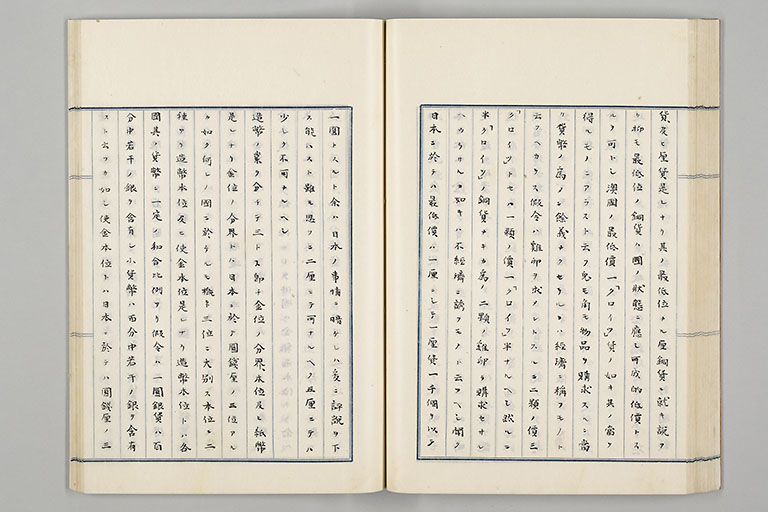 貨及ヒ厘貨是レナリ其ノ最低位ナル厘銅貨ニ就キ説ク
ニ抑モ最低位ノ銅貨ハ國ノ狀態ニ應シ可成的低價トス
ルヲ可トシ澳國ノ最低價一「クロイツ」貨ノ如キ其ノ當ヲ
得ルモノニアラスト云フ兎モ角モ物品ヲ購求スヘシ啻
ノ貨幣ノ為メニ餘義ナクセラルヽハ經濟ニ稱フモノト
云フヘカラス假令ハ雞卵ヲ求メントスルニ二顆ノ價三
「クロイツ」トセハ一顆ノ價一「クロイツ」半ナルヘシ然ルニ
半「クロイツ」ノ銅貨ナキカ為メ二顆ノ雞卵ヲ購求セサレ
ハカラサルカ如キハ不經濟ニ誘フモノト云フヘシ聞ク
日本ニ於テハ最低價ハ一厘ニシテ一厘貨一千個ヲ以テ
一圓トスルト余ハ日本ノ事情ニ暗ケレハ妄ニ評説ヲ下
ス能ハスト雖モ思フニ二厘ニテ可ナルヘク五厘ニテハ
少シク不可ナルヘシ
造幣ノ業ヲ分チテ三トス即チ金位ノ分界本位及ヒ紙幣
是レナリ金位ノ分界トハ日本ニ於テ圓錢厘ノ三位アル
カ如ク何レノ國ニ於テモ概ト三位ニ大別ス本位ニ二
種アリ造幣本位及ヒ使金本位是レナリ造幣本位トハ各
國其ノ貨幣ニ一定ノ和合比例アリ假令ハ一圓銀貨ハ百
分中若干ノ銀ヲ含有シ小貨幣ハ百分中若干ノ銀ヲ含有
スト云フカ如シ使金本位トハ日本ニ於テハ圓錢厘ノ三